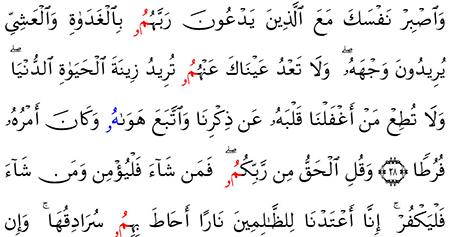 وَٱصۡبِرۡ نَفۡسَكَ مَعَ ٱلَّذِينَ يَدۡعُونَ رَبَّهُمُۥ بِٱلۡغَدَوٰةِ وَٱلۡعَشِيِّ
يُرِيدُونَ وَجۡهَهُۥۖ وَلَا تَعۡدُ عَيۡنَاكَ عَنۡهُمُۥ تُرِيدُ زِينَةَ ٱلۡحَيَوٰةِ ٱلدُّنۡيَاۖ
وَلَا تُطِعۡ مَنۡ أَغۡفَلۡنَا قَلۡبَهُۥ عَن ذِكۡرِنَا وَٱتَّبَعَ هَوَىٰهُۥ وَكَانَ أَمۡرُهُۥ
فُرُطٗا ۝٢٨ وَقُلِ ٱلۡحَقُّ مِن رَّبِّكُمُۥۖ فَمَن شَآءَ فَلۡيُؤۡمِن وَمَن شَآءَ
فَلۡيَكۡفُرۡۚ إِنَّآ أَعۡتَدۡنَا لِلظَّٰلِمِينَ نَارًا أَحَاطَ بِهِمُۥ سُرَادِقُهَاۚ وَإِن